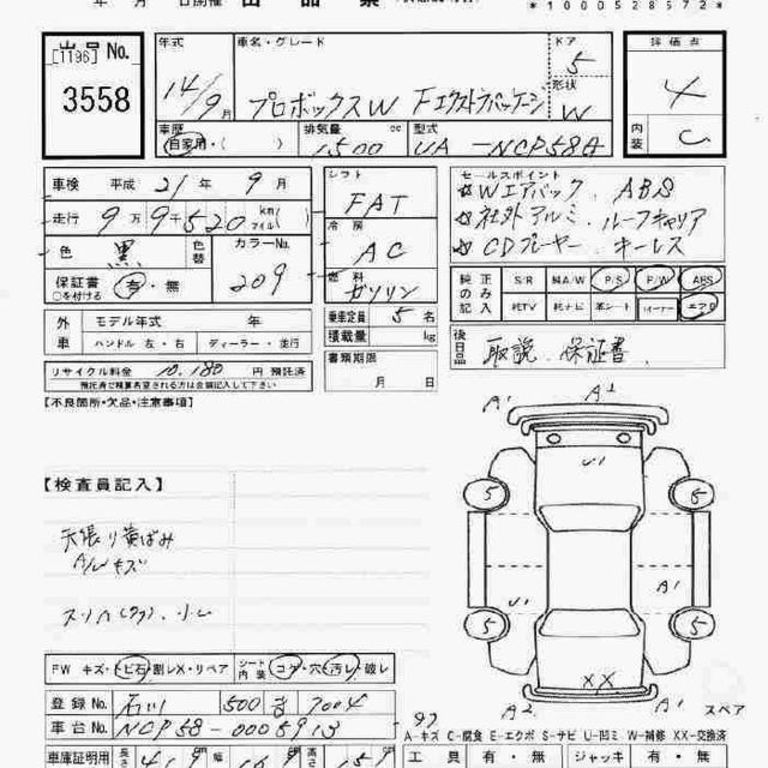 年 月 日開催 出 品 票
*1000528572*
出品 No.
[1196]
3558
年式 車名・グレード ドア 評価点
14/9月 プロボックスW Fエクストラパッケージ 5 4
形状 W
内装 C
車歴 自家用・( ) 排気量 1500 cc 型式 UA-NCP58G
車検 平成 21 年 9 月
走行 9万 9千520 km/マイル( )
色 黒 色替 カラーNo. 209
保証書 有・無
○を付ける
シフト FAT
冷房 AC
燃料 ガソリン
セールスポイント
☆Wエアバック. ABS
☆社外アルミ. ルーフキャリア
☆CDプレーヤー. キーレス
純正のみ記入 S/R 純A/W P/S P/W ABS
純TV 純ナビ 革シート エアB
外車 モデル年式 年
ハンドル 左・右 ディーラー・並行
乗車定員 5 名
積載量 kg
書類期限
月 日
後日品 取説. 保証書.
リサイクル料金 10,180 円 預託済
預託済で精算希望される方は金額記入して下さい
【不良箇所・欠品・注意事項】
A1 A2
U1
5 5
A1
U1
5 5
XX
A2 A1 スペア
【検査員記入】
天張り黄ばみ
A/Wキズ
FW キズ・トビ石・割レX・リペア シート内装 コゲ・穴・汚レ・破レ
登録 No. 石川 500 7004
車台 No. NCP58-0005913
97
A-キズ C-腐食 E-エクボ S-サビ U-凹ミ W-補修 XX-交換済
車庫証明用 長さ 419 cm 幅 cm 高さ cm
工具 有・無 ジャッキ 有・無